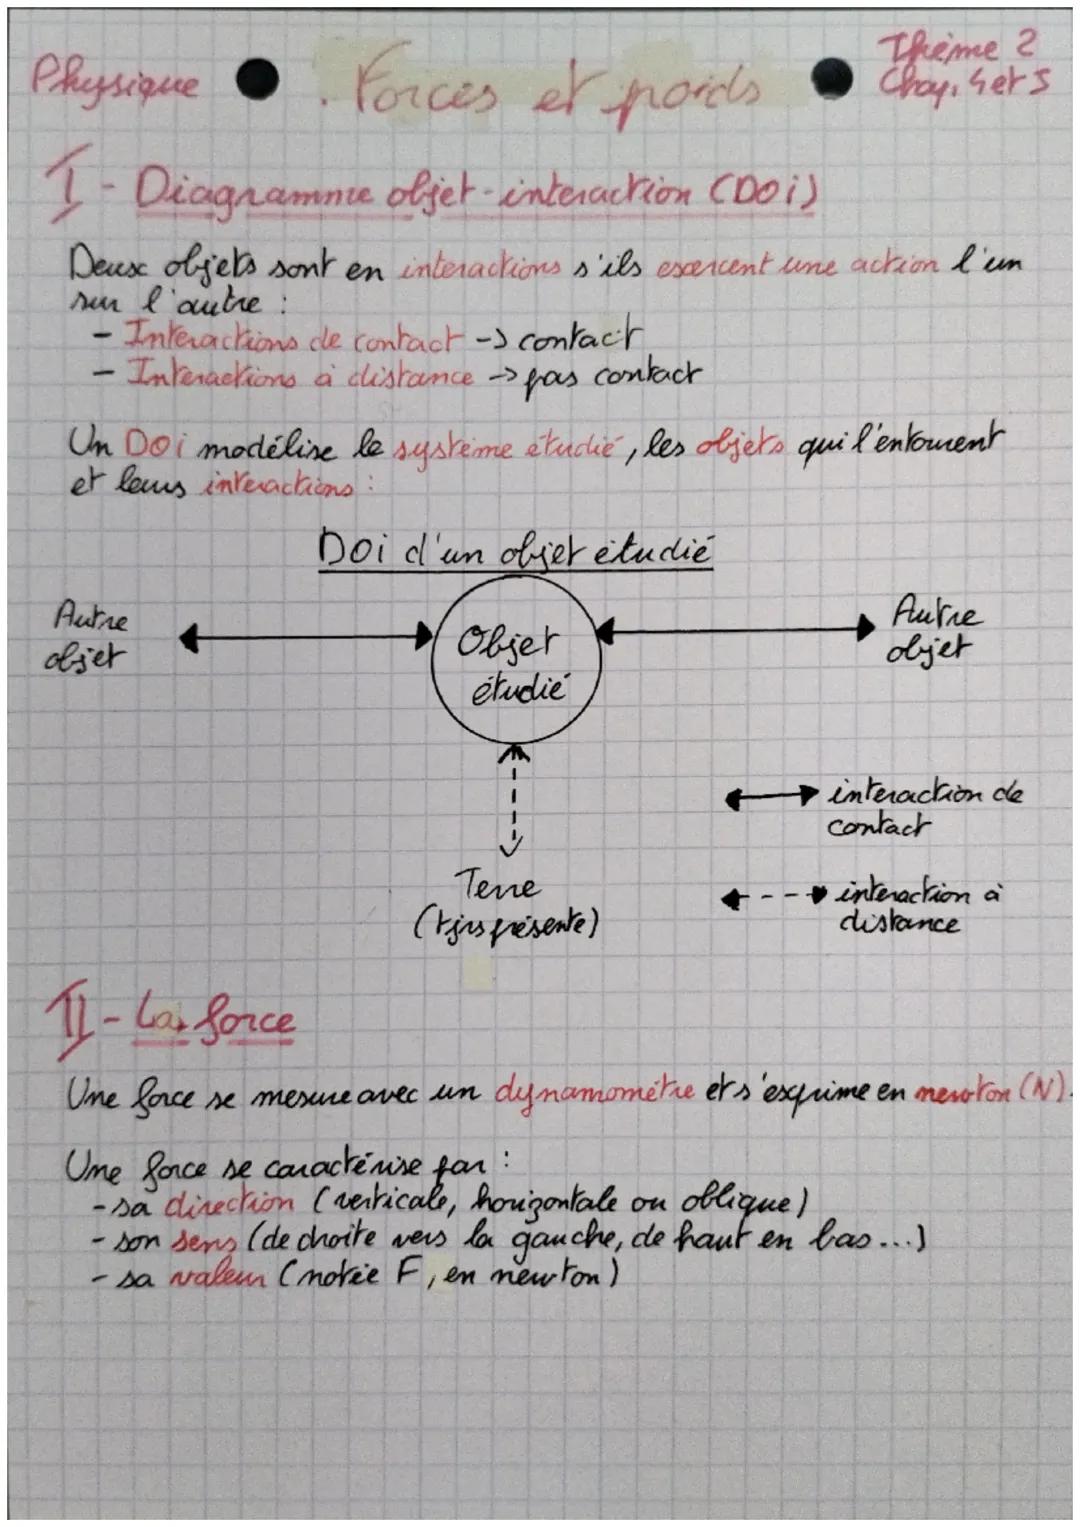 Physique
Forces et poids
Thème 2
Chap. 4 et 5
I - Diagramme objet-interaction (DOi)
Deux objets sont en interactions s'ils exercent une action l'un
sur l'autre :
- Interactions de contact -> contact
- Interactions à distance -> pas contact
Un DOi modélise le système étudié, les objets qui l'entourent
et leurs interactions :
DOi d'un objet étudié
Autre
objet
Objet
étudié
Autre
objet
interaction de
contact
Terre
(tjrs présente)
interaction à
distance
II - La force
Une force se mesure avec un dynamomètre et s'exprime en newton (N).
Une force se caractérise par :
- sa direction (verticale, horizontale ou oblique)
- son sens (de droite vers la gauche, de haut en bas...)
- sa valeur (notée F, en newton)